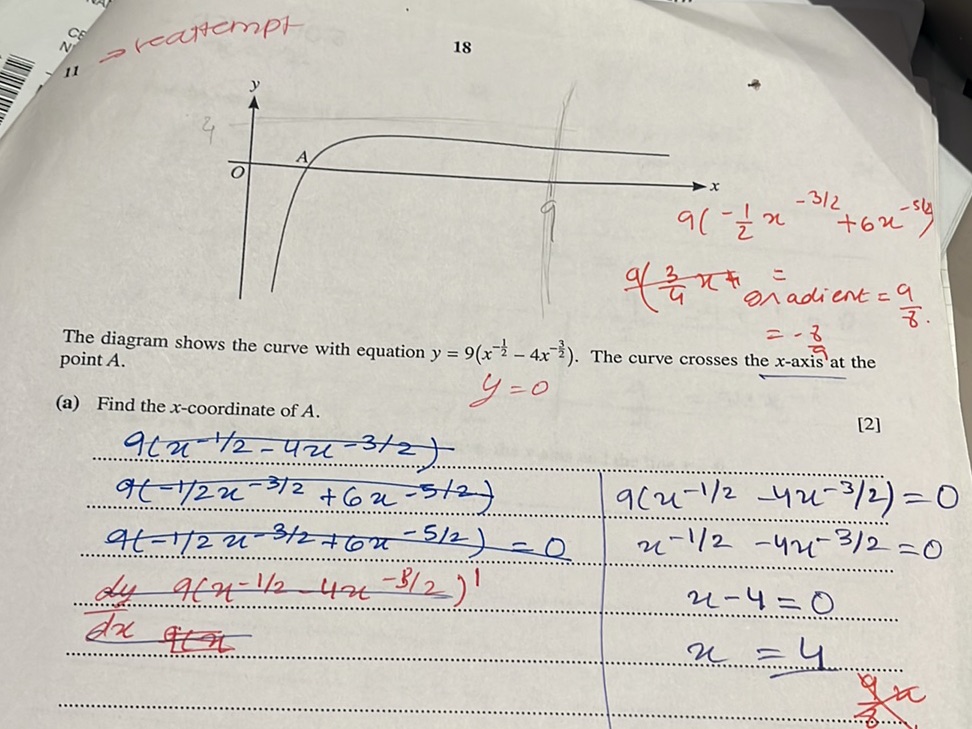 ⇒ reattempt
18
11
y
4
A
O
x
9
9(-1/2 x^-3/2 + 6x^-5/2)
9(3/4 x +
=
Gradient = 9/8.
= -8/9
The diagram shows the curve with equation y = 9(x^-1/2 − 4x^-3/2). The curve crosses the x-axis at the
point A.
y = 0
(a) Find the x-coordinate of A.
[2]
9(x^-1/2 - 4x^-3/2)
9(-1/2x^-3/2 + 6x^-5/2)
9(-1/2x^-3/2 + 6x^-5/2) = 0
dy/dx 9(x^-1/2 - 4x^-3/2)^1
9(x
9(x^-1/2 - 4x^-3/2) = 0
x^-1/2 - 4x^-3/2 = 0
x - 4 = 0
x = 4
9/8 x